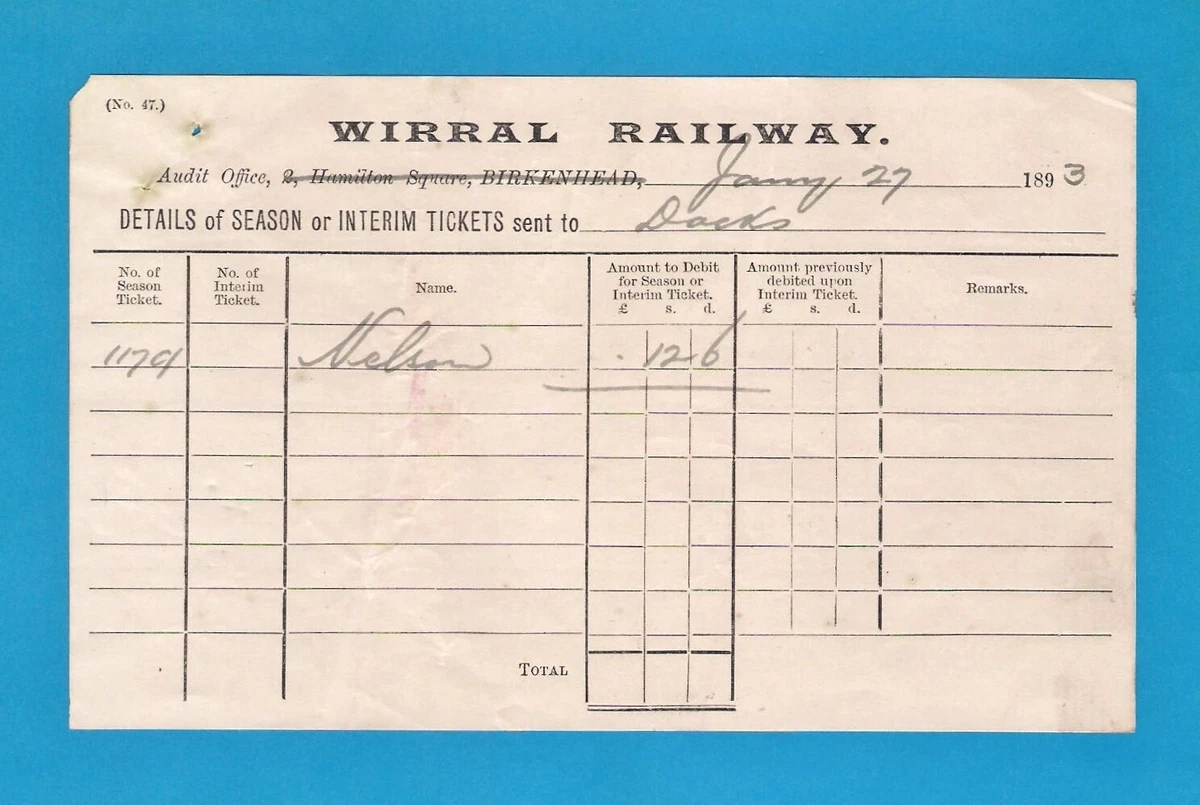 (No. 47.)
WIRRAL RAILWAY.
Audit Office, 2, Hamilton Square, BIRKENHEAD, Jany 27 1893
DETAILS of SEASON or INTERIM TICKETS sent to Docks
No. of Season Ticket.
No. of Interim Ticket.
Name.
Amount to Debit for Season or Interim Ticket.
£ s. d.
Amount previously debited upon Interim Ticket.
£ s. d.
Remarks.
1179 Nelson . 12 6
TOTAL